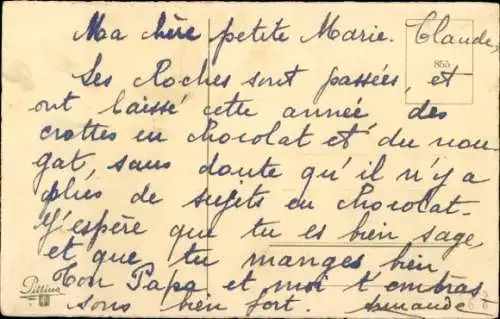 Ma chère petite Marie. Claude,
855
Les Cloches sont passées, et
ont laissé cette année des
crottes en chocolat et du nou-
gat, sans doute qu'il n'y a
plus de sujets en chocolat.
J'espère que tu es bien sage,
et que tu manges bien
Ton Papa et moi t'embras
sons bien fort.